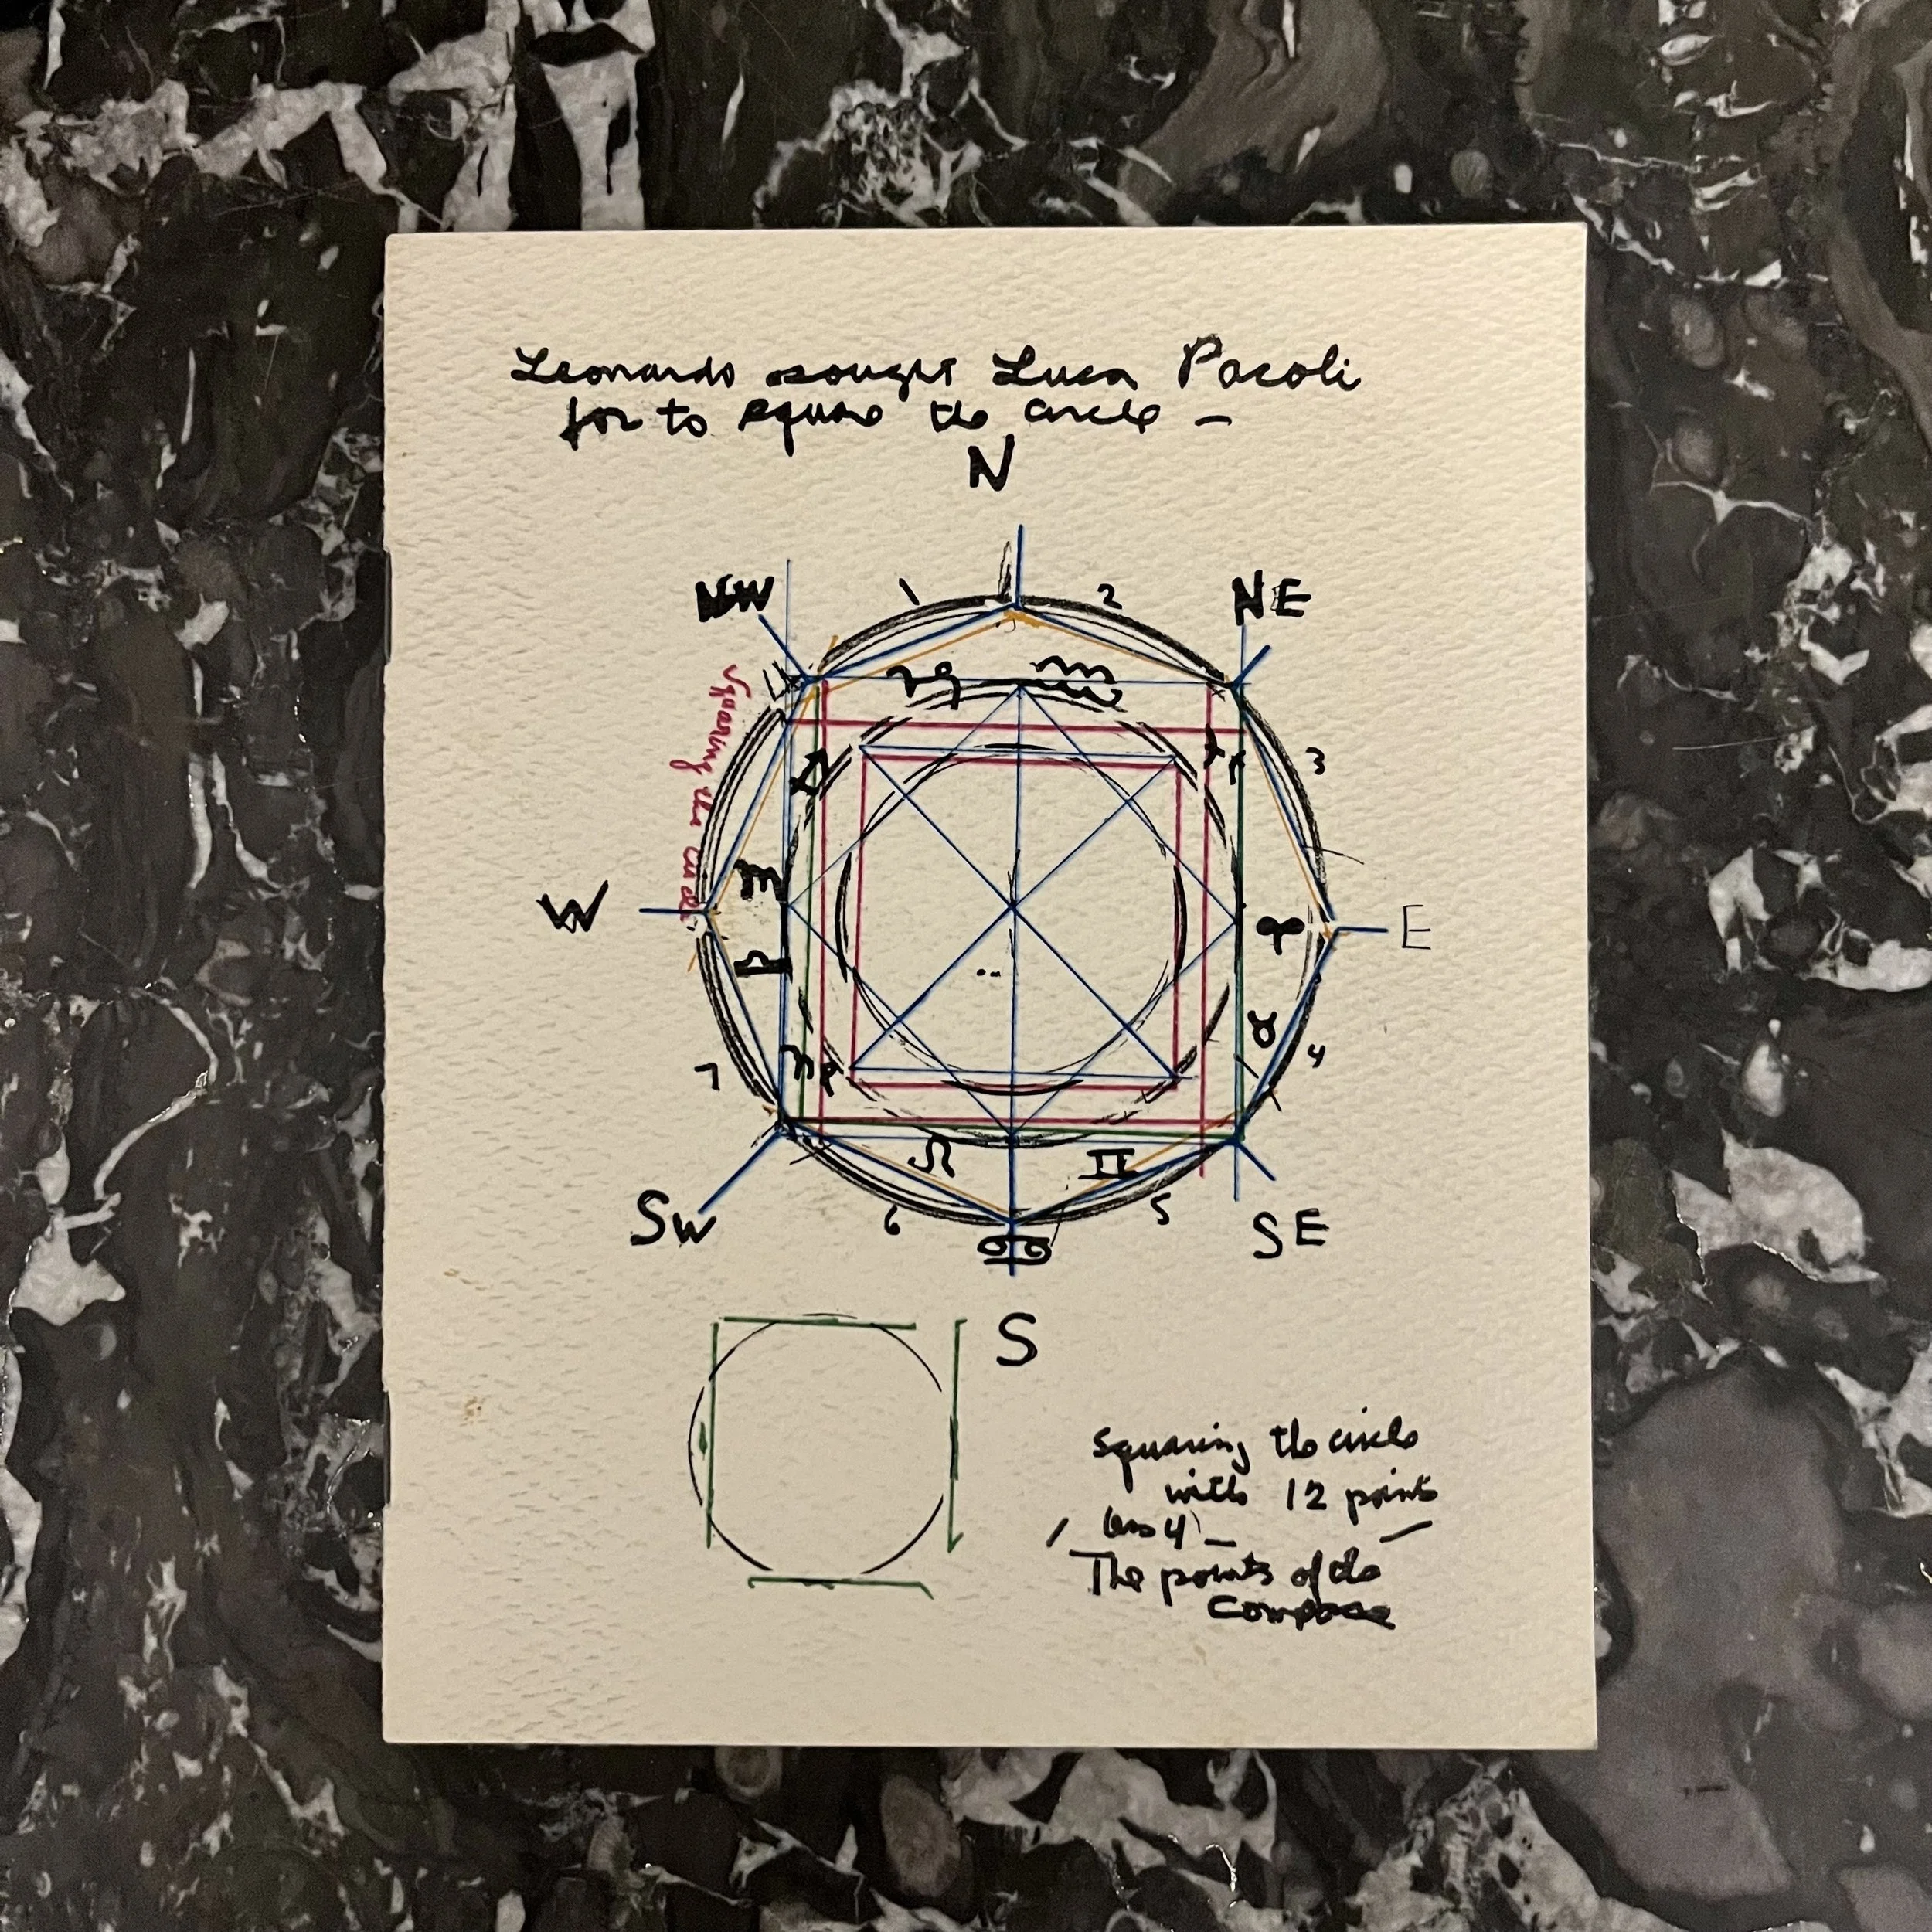 Leonardo sought Luca Pacoli
for to square the circle —
N
NW
1
2
NE
3
Squaring the circle
♑
♏
♈
W
E
♎
♉
7
4
♌
♊
6
5
SW
♋
SE
S
squaring the circle
with 12 points
/ less 4 — —
The points of the
Compass